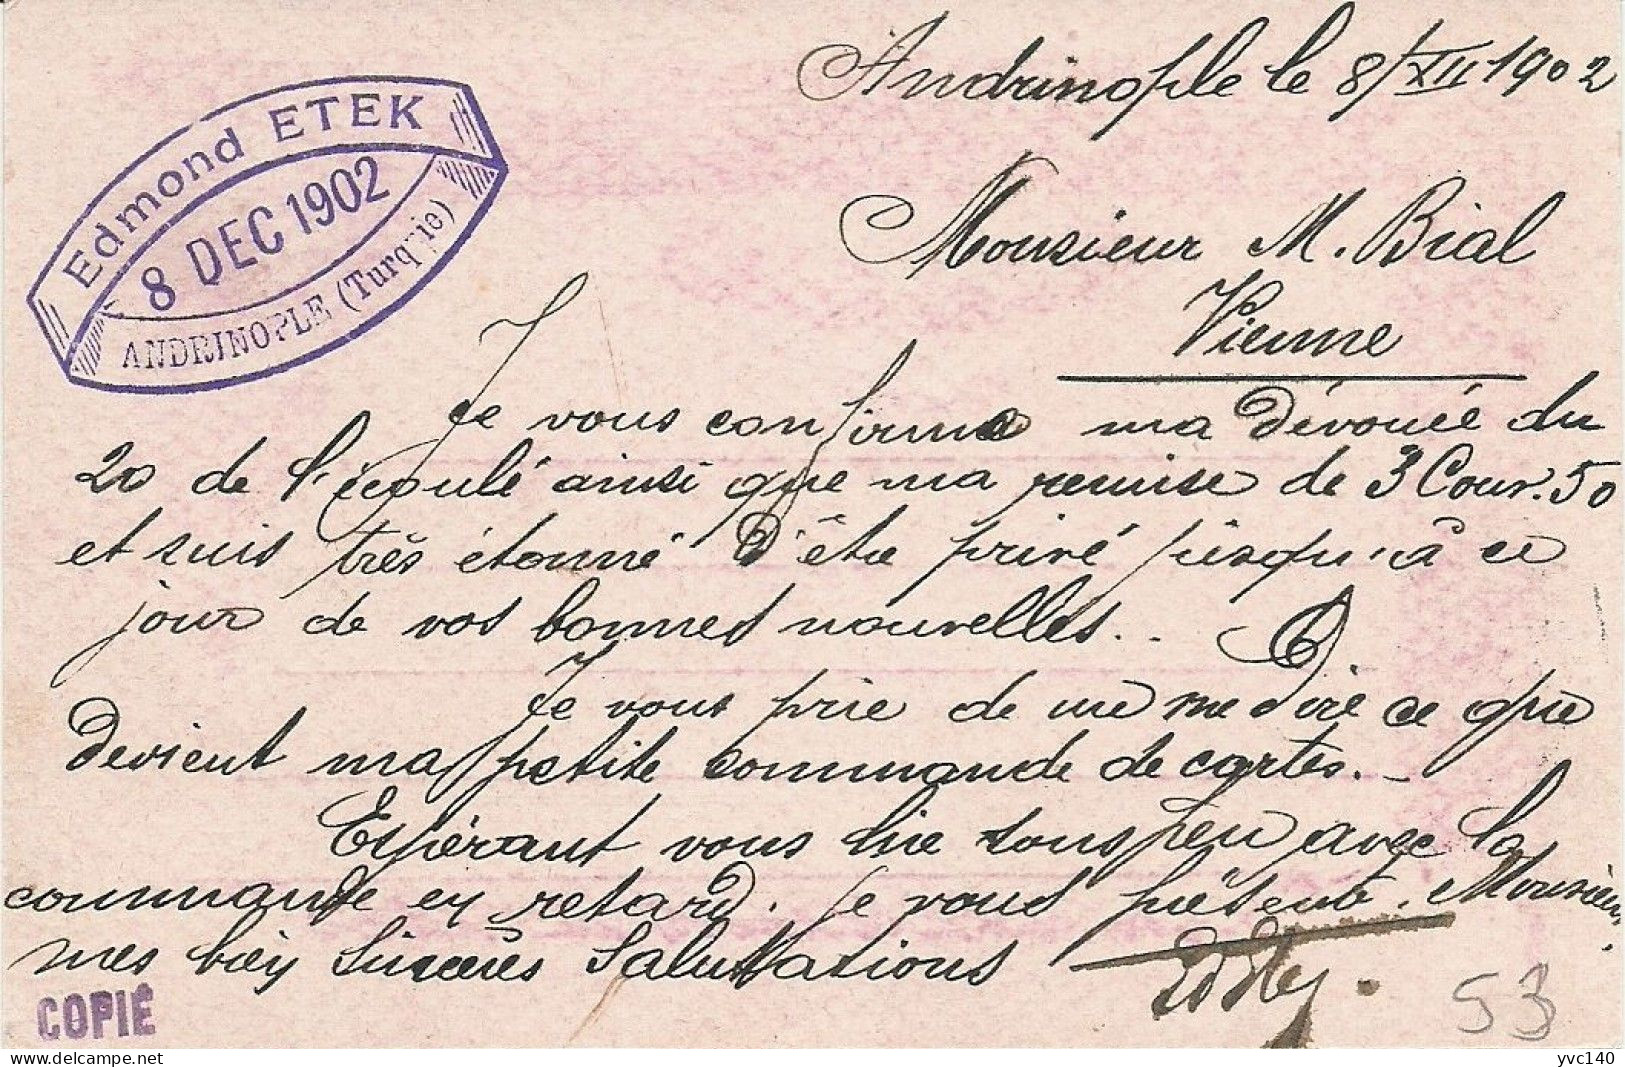 Andrinople le 8/XII 1902
Edmond ETEK
8 DEC 1902
ANDRINOPLE (Turquie)
Monsieur M. Bial
Vienne
Je vous confirme ma dévouée du
20 de l'écoulé ainsi que ma remise de 3 Cour. 50
et suis très étonné d'être privé jusqu'à ce
jour de vos bonnes nouvelles..
Je vous prie de me dire ce que
devient ma petite commande de cartes. -
Espérant vous lire sous peu avec la
commande en retard. Je vous présente, Monsieur,
mes bien sincères salutations
COPIÉ
53
yvc140